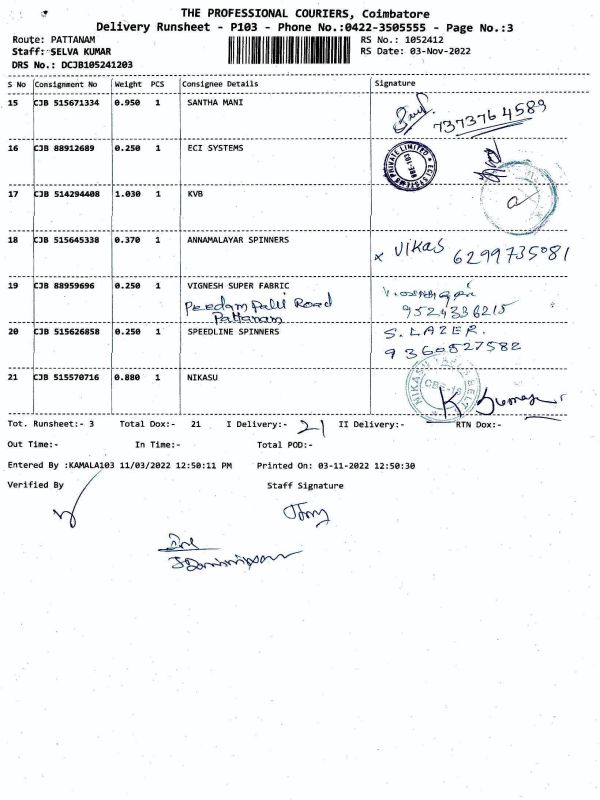 THE PROFESSIONAL COURIERS, Coimbatore
Delivery Runsheet - P103 - Phone No.:0422-3505555 - Page No.:3
Route: PATTANAM RS No.: 1052412
Staff: SELVA KUMAR RS Date: 03-Nov-2022
DRS No.: DCJB105241203
S No Consignment No Weight PCS Consignee Details Signature
15 CJB 515671334 0.950 1 SANTHA MANI
7373764589
16 CJB 88912689 0.250 1 ECI SYSTEMS
ECI SYSTEMS PRIVATE LIMITED
17 CJB 514294408 1.030 1 KVB
18 CJB 515645338 0.370 1 ANNAMALAYAR SPINNERS
x Vikas 6299735081
19 CJB 88959696 0.250 1 VIGNESH SUPER FABRIC
Peedam Palli Road 9524336215
Pattanam
20 CJB 515626858 0.250 1 SPEEDLINE SPINNERS S. LAZER.
9360527582
21 CJB 515570716 0.880 1 NIKASU
K Kumar
Tot. Runsheet:- 3 Total Dox:- 21 I Delivery:- 21 II Delivery:- RTN Dox:-
Out Time:- In Time:- Total POD:-
Entered By :KAMALA103 11/03/2022 12:50:11 PM Printed On: 03-11-2022 12:50:30
Verified By Staff Signature